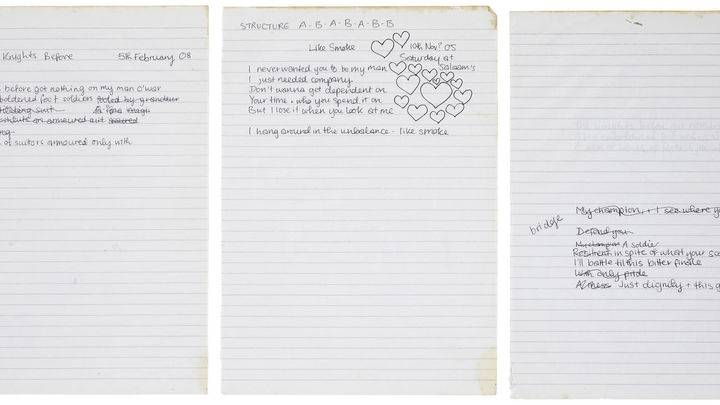 Knights Before 5th February 08
before got nothing on my man o'war
boldened foot soldiers fooled by grandeur
suit
on armoured suit
of suitors armoured only with
STRUCTURE A-B-A-B-A-B-B
Like Smoke 10th Nov? 05
Saturday at
Salaam's
I never wanted you to be my man
I just needed company
Don't wanna get dependent on
Your time, who you spend it on
But I lose it when you look at me
I hang around in the unbalance - like smoke
bridge
My champion, + I see where
Defend you
My champion A soldier
in spite of what your
I'll battle til this bitter finale
With only pride
Just dignity + this